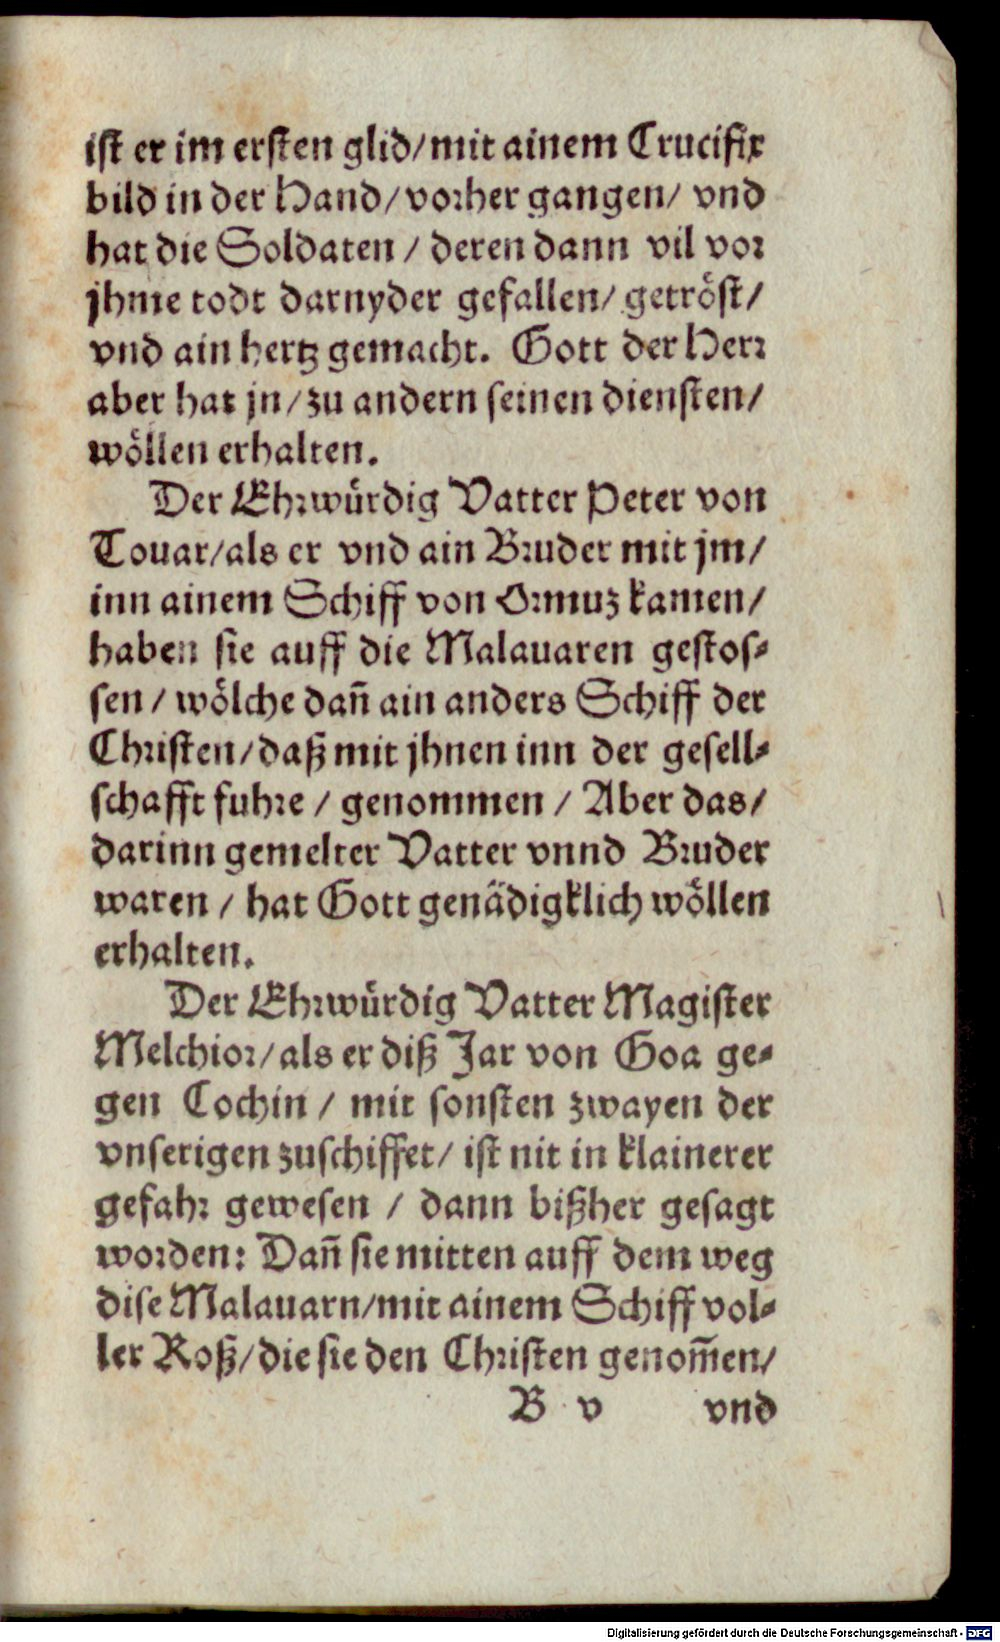 ist er im ersten glid/mit ainem Crucifix
bild in der Hand/vorher gangen/ vnd
hat die Soldaten / deren dann vil vor
jhme todt darnyder gefallen/ getröst/
vnd ain hertz gemacht. Gott der Herr
aber hat jn/zu andern seinen diensten/
wöllen erhalten.
Der Ehrwürdig Vatter Peter von
Touar/als er vnd ain Bruder mit jm/
inn ainem Schiff von Ormuz kamen/
haben sie auff die Malauaren gestos-
sen/ wölche dañ ain anders Schiff der
Christen/daß mit jhnen inn der gesell-
schafft fuhre / genommen / Aber das/
darinn gemelter Vatter vnnd Bruder
waren / hat Gott genädigklich wöllen
erhalten.
Der Ehrwürdig Vatter Magister
Melchior/als er diß Jar von Goa ge-
gen Cochin / mit sonsten zwayen der
vnserigen zuschiffet/ ist nit in klainerer
gefahr gewesen / dann bißher gesagt
worden: Dañ sie mitten auff dem weg
dise Malauarn/mit ainem Schiff vol-
ler Roß/die sie den Christen genom̃en/
B v vnd
Digitalisierung gefördert durch die Deutsche Forschungsgemeinschaft - DFG